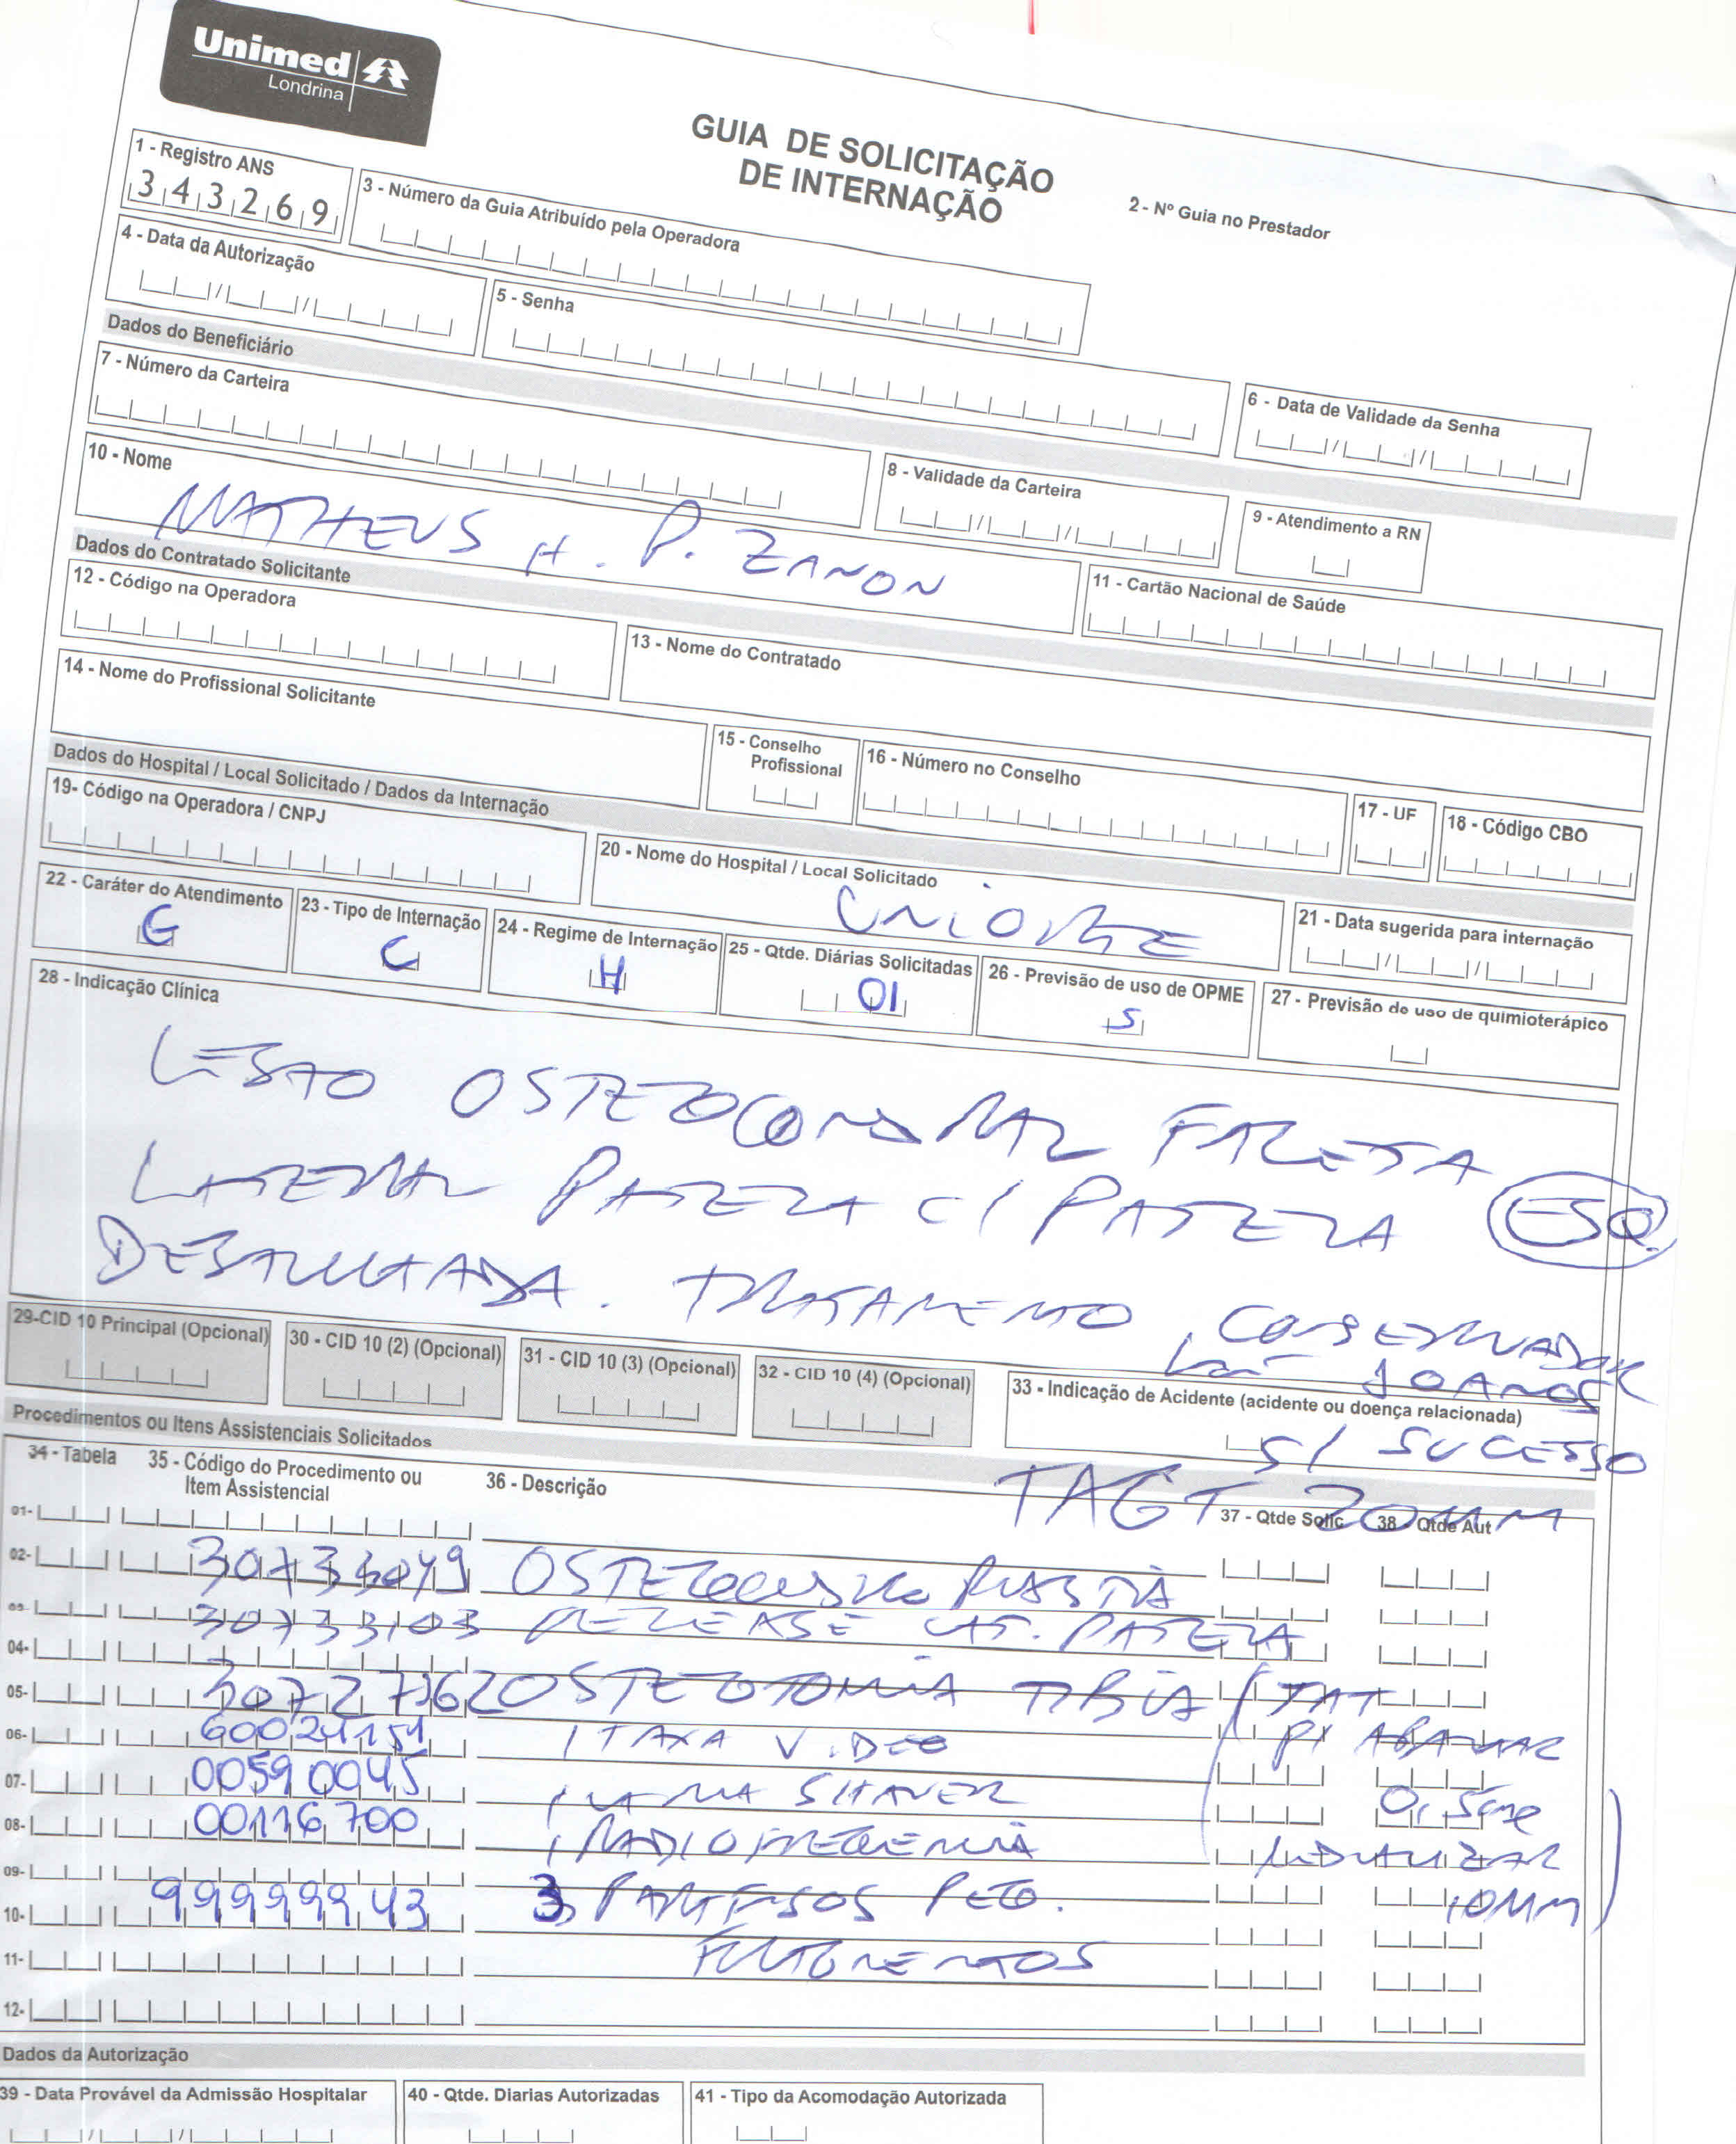 Unimed
Londrina
GUIA DE SOLICITAÇÃO
DE INTERNAÇÃO
2 - Nº Guia no Prestador
1 - Registro ANS
343269
3 - Número da Guia Atribuído pela Operadora
4 - Data da Autorização
5 - Senha
6 - Data de Validade da Senha
Dados do Beneficiário
7 - Número da Carteira
8 - Validade da Carteira
9 - Atendimento a RN
10 - Nome
MATHEUS H. P. ZANON
11 - Cartão Nacional de Saúde
Dados do Contratado Solicitante
12 - Código na Operadora
13 - Nome do Contratado
14 - Nome do Profissional Solicitante
15 - Conselho Profissional
16 - Número no Conselho
17 - UF
18 - Código CBO
Dados do Hospital / Local Solicitado / Dados da Internação
19- Código na Operadora / CNPJ
20 - Nome do Hospital / Local Solicitado
UNIORTE
21 - Data sugerida para internação
22 - Caráter do Atendimento
23 - Tipo de Internação
C
24 - Regime de Internação
H
25 - Qtde. Diárias Solicitadas
01
26 - Previsão de uso de OPME
S
27 - Previsão de uso de quimioterápico
28 - Indicação Clínica
LESÃO OSTEOCONDRAL FACETA
LATERAL PATELA C/ PATELA ESQ.
TRATAMENTO CONSERVADOR
10 ANOS
S/ SUCESSO
TAGT 20MM
29-CID 10 Principal (Opcional)
30 - CID 10 (2) (Opcional)
31 - CID 10 (3) (Opcional)
32 - CID 10 (4) (Opcional)
33 - Indicação de Acidente (acidente ou doença relacionada)
Procedimentos ou Itens Assistenciais Solicitados
34 - Tabela
35 - Código do Procedimento ou Item Assistencial
36 - Descrição
37 - Qtde Solic
38 - Qtde Aut
01-
02- 30733049 PLASTIA
03- 30733103 RELEASE LAT. PATELA
04-
05- 30727162 OSTEOTOMIA TIBIA / TAT
06- 60024151 1 TAXA VIDEO P/
07- 00590045 1 LAMINA SHAVER
08- 00116700 1 RADIOFREQUENCIA
09- 10MM)
10- 99999943 3 PARAFUSOS PEQ.
11- FRAGMENTOS
12-
Dados da Autorização
39 - Data Provável da Admissão Hospitalar
40 - Qtde. Diarias Autorizadas
41 - Tipo da Acomodação Autorizada